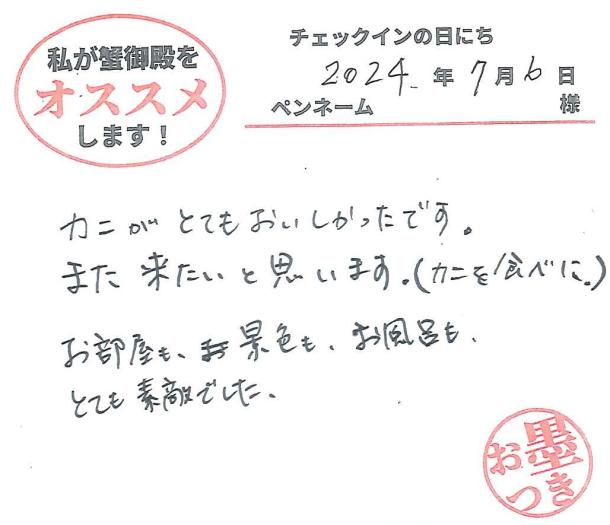 私が蟹御殿を
オススメ
します！
チェックインの日にち
2024年 7月 6日
ペンネーム 様
カニが とてもおいしかったです。
また 来たいと思います。(カニを食べに。)
お部屋も、景色も、お風呂も、
とても 素敵でした。
お墨
つき